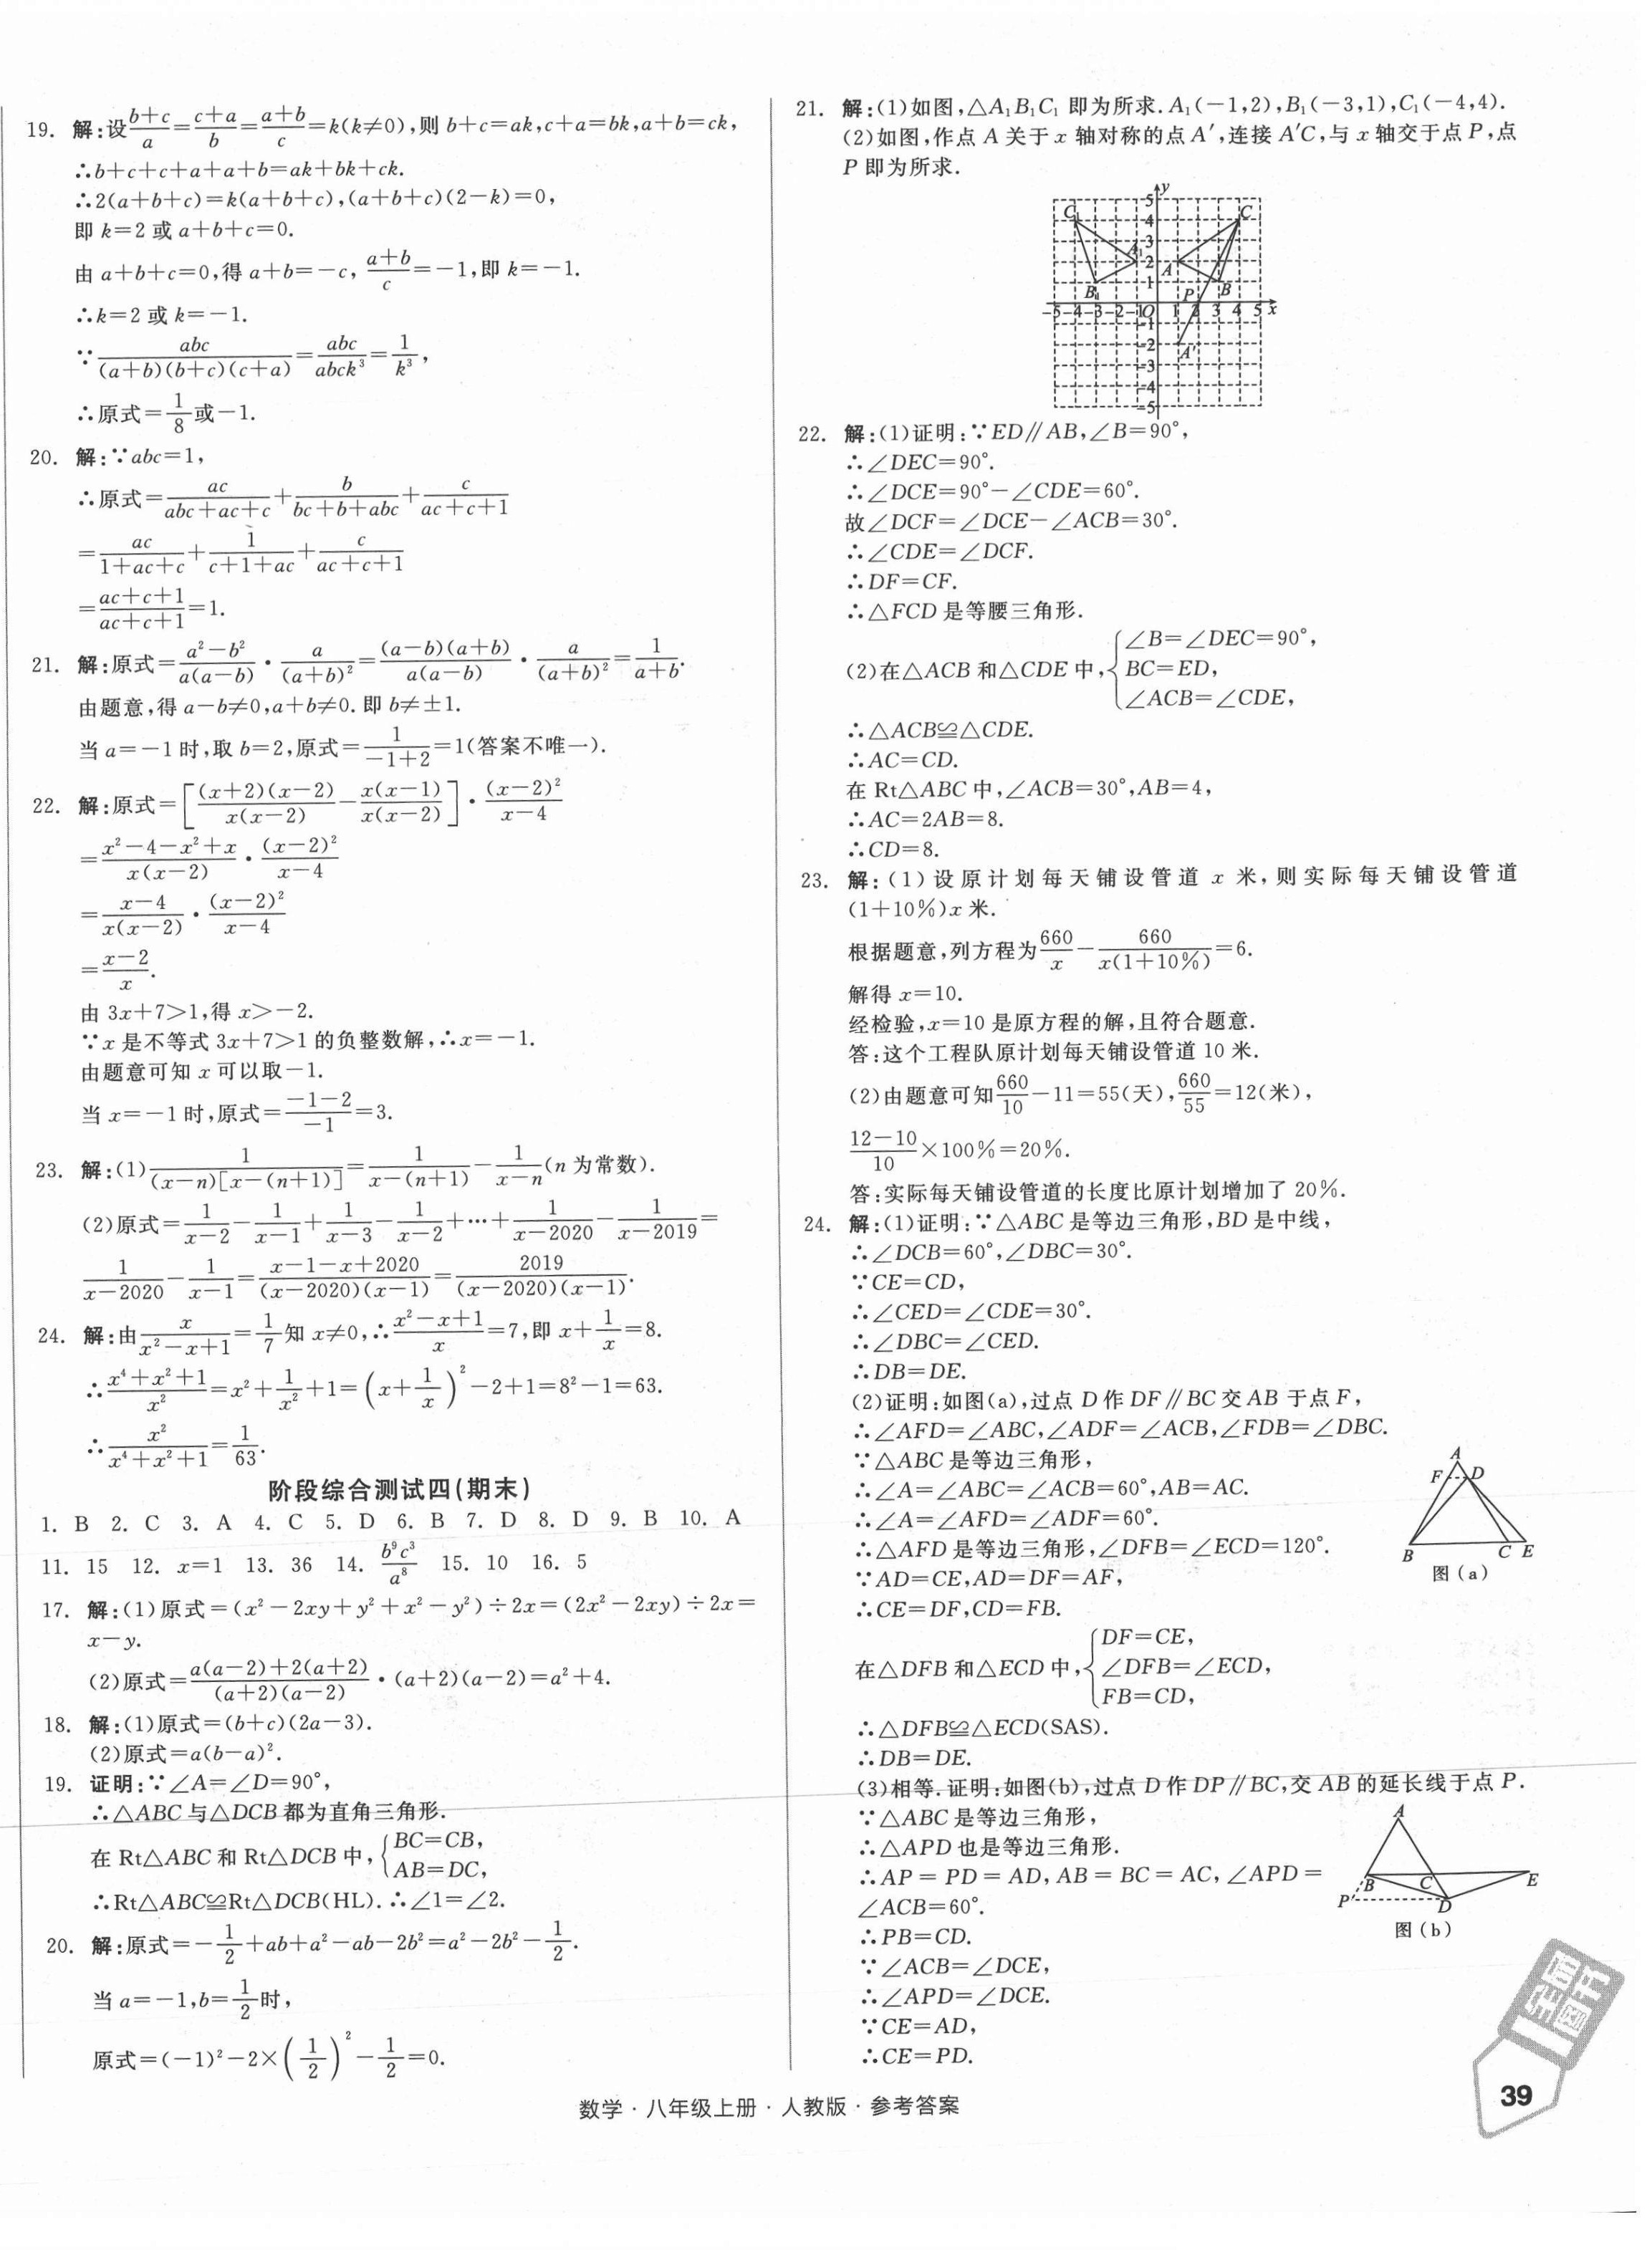 19. 解:设\frac{b+c}{a}=\frac{c+a}{b}=\frac{a+b}{c}=k(k≠0),则 b+c=ak,c+a=bk,a+b=ck,
∴b+c+c+a+a+b=ak+bk+ck.
∴2(a+b+c)=k(a+b+c),(a+b+c)(2-k)=0,
即 k=2 或 a+b+c=0.
由 a+b+c=0,得 a+b=-c, \frac{a+b}{c}=-1,即 k=-1.
∴k=2 或 k=-1.
∵\frac{abc}{(a+b)(b+c)(c+a)}=\frac{abc}{abck³}=\frac{1}{k³},
∴原式=\frac{1}{8}或-1.
20. 解:∵abc=1,
∴原式=\frac{ac}{abc+ac+c}+\frac{b}{bc+b+abc}+\frac{c}{ac+c+1}
=\frac{ac}{1+ac+c}+\frac{1}{c+1+ac}+\frac{c}{ac+c+1}
=\frac{ac+c+1}{ac+c+1}=1.
21. 解:原式=\frac{a²-b²}{a(a-b)}·\frac{a}{(a+b)²}=\frac{(a-b)(a+b)}{a(a-b)}·\frac{a}{(a+b)²}=\frac{1}{a+b}.
由题意,得 a-b≠0,a+b≠0.即 b≠±1.
当 a=-1 时,取 b=2,原式=\frac{1}{-1+2}=1(答案不唯一).
22. 解:原式=[\frac{(x+2)(x-2)}{x(x-2)}-\frac{x(x-1)}{x(x-2)}]·\frac{(x-2)²}{x-4}
=\frac{x²-4-x²+x}{x(x-2)}·\frac{(x-2)²}{x-4}
=\frac{x-4}{x(x-2)}·\frac{(x-2)²}{x-4}
=\frac{x-2}{x}.
由 3x+7>1,得 x>-2.
∵x 是不等式 3x+7>1 的负整数解,∴x=-1.
由题意可知 x 可以取-1.
当 x=-1 时,原式=\frac{-1-2}{-1}=3.
23. 解:(1)\frac{1}{(x-n)[x-(n+1)]}=\frac{1}{x-(n+1)}-\frac{1}{x-n}(n 为常数).
(2)原式=\frac{1}{x-2}-\frac{1}{x-1}+\frac{1}{x-3}-\frac{1}{x-2}+…+\frac{1}{x-2020}-\frac{1}{x-2019}=
\frac{1}{x-2020}-\frac{1}{x-1}=\frac{x-1-x+2020}{(x-2020)(x-1)}=\frac{2019}{(x-2020)(x-1)}.
24. 解:由\frac{x}{x²-x+1}=\frac{1}{7}知 x≠0,∴\frac{x²-x+1}{x}=7,即 x+\frac{1}{x}=8.
∴\frac{x⁴+x²+1}{x²}=x²+\frac{1}{x²}+1=(x+\frac{1}{x})²-2+1=8²-1=63.
∴\frac{x²}{x⁴+x²+1}=\frac{1}{63}.
阶段综合测试四(期末)
1. B 2. C 3. A 4. C 5. D 6. B 7. D 8. D 9. B 10. A
11. 15 12. x=1 13. 36 14. \frac{b⁹c³}{a⁸} 15. 10 16. 5
17. 解:(1)原式=(x²-2xy+y²+x²-y²)÷2x=(2x²-2xy)÷2x=
x-y.
(2)原式=\frac{a(a-2)+2(a+2)}{(a+2)(a-2)}·(a+2)(a-2)=a²+4.
18. 解:(1)原式=(b+c)(2a-3).
(2)原式=a(b-a)².
19. 证明:∵∠A=∠D=90°,
∴△ABC 与△DCB 都为直角三角形.
在 Rt△ABC 和 Rt△DCB 中,{BC=CB,
AB=DC,
∴Rt△ABC≌Rt△DCB(HL).∴∠1=∠2.
20. 解:原式=-\frac{1}{2}+ab+a²-ab-2b²=a²-2b²-\frac{1}{2}.
当 a=-1,b=\frac{1}{2}时,
原式=(-1)²-2×(\frac{1}{2})²-\frac{1}{2}=0.
21. 解:(1)如图,△A₁B₁C₁ 即为所求.A₁(-1,2),B₁(-3,1),C₁(-4,4).
(2)如图,作点 A 关于 x 轴对称的点 A′,连接 A′C,与 x 轴交于点 P,点
P 即为所求.
y
5
C₁ 4 C
3
A₁ 2 A
B₁ 1 P B
-5 -4 -3 -2 -1 O 1 2 3 4 5 x
-1
-2 A′
-3
-4
-5
22. 解:(1)证明:∵ED∥AB,∠B=90°,
∴∠DEC=90°.
∴∠DCE=90°-∠CDE=60°.
故∠DCF=∠DCE-∠ACB=30°.
∴∠CDE=∠DCF.
∴DF=CF.
∴△FCD 是等腰三角形.
(2)在△ACB 和△CDE 中,{∠B=∠DEC=90°,
BC=ED,
∠ACB=∠CDE,
∴△ACB≌△CDE.
∴AC=CD.
在 Rt△ABC 中,∠ACB=30°,AB=4,
∴AC=2AB=8.
∴CD=8.
23. 解:(1)设原计划每天铺设管道 x 米,则实际每天铺设管道
(1+10%)x 米.
根据题意,列方程为\frac{660}{x}-\frac{660}{x(1+10%)}=6.
解得 x=10.
经检验,x=10 是原方程的解,且符合题意.
答:这个工程队原计划每天铺设管道 10 米.
(2)由题意可知\frac{660}{10}-11=55(天),\frac{660}{55}=12(米),
\frac{12-10}{10}×100%=20%.
答:实际每天铺设管道的长度比原计划增加了 20%.
24. 解:(1)证明:∵△ABC 是等边三角形,BD 是中线,
∴∠DCB=60°,∠DBC=30°.
∵CE=CD,
∴∠CED=∠CDE=30°.
∴∠DBC=∠CED.
∴DB=DE.
(2)证明:如图(a),过点 D 作 DF∥BC 交 AB 于点 F,
∴∠AFD=∠ABC,∠ADF=∠ACB,∠FDB=∠DBC.
∵△ABC 是等边三角形,
∴∠A=∠ABC=∠ACB=60°,AB=AC.
∴∠A=∠AFD=∠ADF=60°.
∴△AFD 是等边三角形,∠DFB=∠ECD=120°.
∵AD=CE,AD=DF=AF,
∴CE=DF,CD=FB.
A
F D
B C E
图(a)
在△DFB 和△ECD 中,{DF=CE,
∠DFB=∠ECD,
FB=CD,
∴△DFB≌△ECD(SAS).
∴DB=DE.
(3)相等.证明:如图(b),过点 D 作 DP∥BC,交 AB 的延长线于点 P.
∵△ABC 是等边三角形,
∴△APD 也是等边三角形.
∴AP=PD=AD,AB=BC=AC,∠APD=
∠ACB=60°.
∴PB=CD.
∵∠ACB=∠DCE,
∴∠APD=∠DCE.
∵CE=AD,
∴CE=PD.
A
B C E
P D
图(b)
数学·八年级上册·人教版·参考答案
39